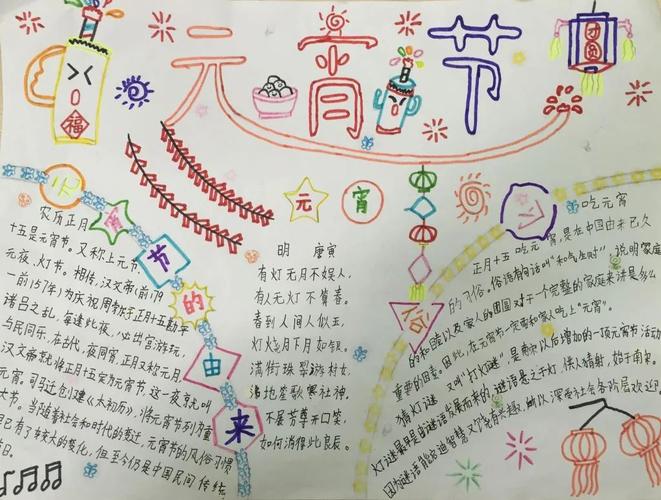 元宵节
福
团圆
元宵
元宵节的由来
农历正月
十五是元宵节。又称上元节
元夜、灯节。相传，汉文帝(前179
一前157年)为庆祝周勃于正月十五勘平
诸吕之乱，每逢此夜，必出宫游玩，
与民同乐，在古代，夜同宵，正月又称元月，
汉文帝就将正月十五定为元宵节，这一夜就叫
元宵。司马迁创建《太初历》，将元宵节列为重
大节。当随着社会和时代的变迁，元宵节的风俗习惯
早已有了较大的变化，但至今仍是中国民间传统
节日。
明 唐寅
有灯无月不娱人，
有人无灯不算春。
春到人间人似玉，
灯烧月下月如银。
满街珠翠游村女，
沸地笙歌赛社神。
不展芳尊开口笑，
如何消得此良辰。
吃元宵
正月十五吃元宵，是在中国由来已久
的习俗。俗语有句话叫“和气生财”，说明家庭
的和睦以及家人的团圆对于一个完整的家庭来讲是多么
重要的因素。因此，在元宵节一定要和家人吃上“元宵”。
猜灯谜 又叫“打灯谜”是元宵以后增加的一项元宵节活动
灯谜最早是由谜语发展而来的，谜语悬之于灯，供人猜射，始于南宋。
因为谜语能启迪智慧又饶有兴趣，所以深受社会各阶层欢迎